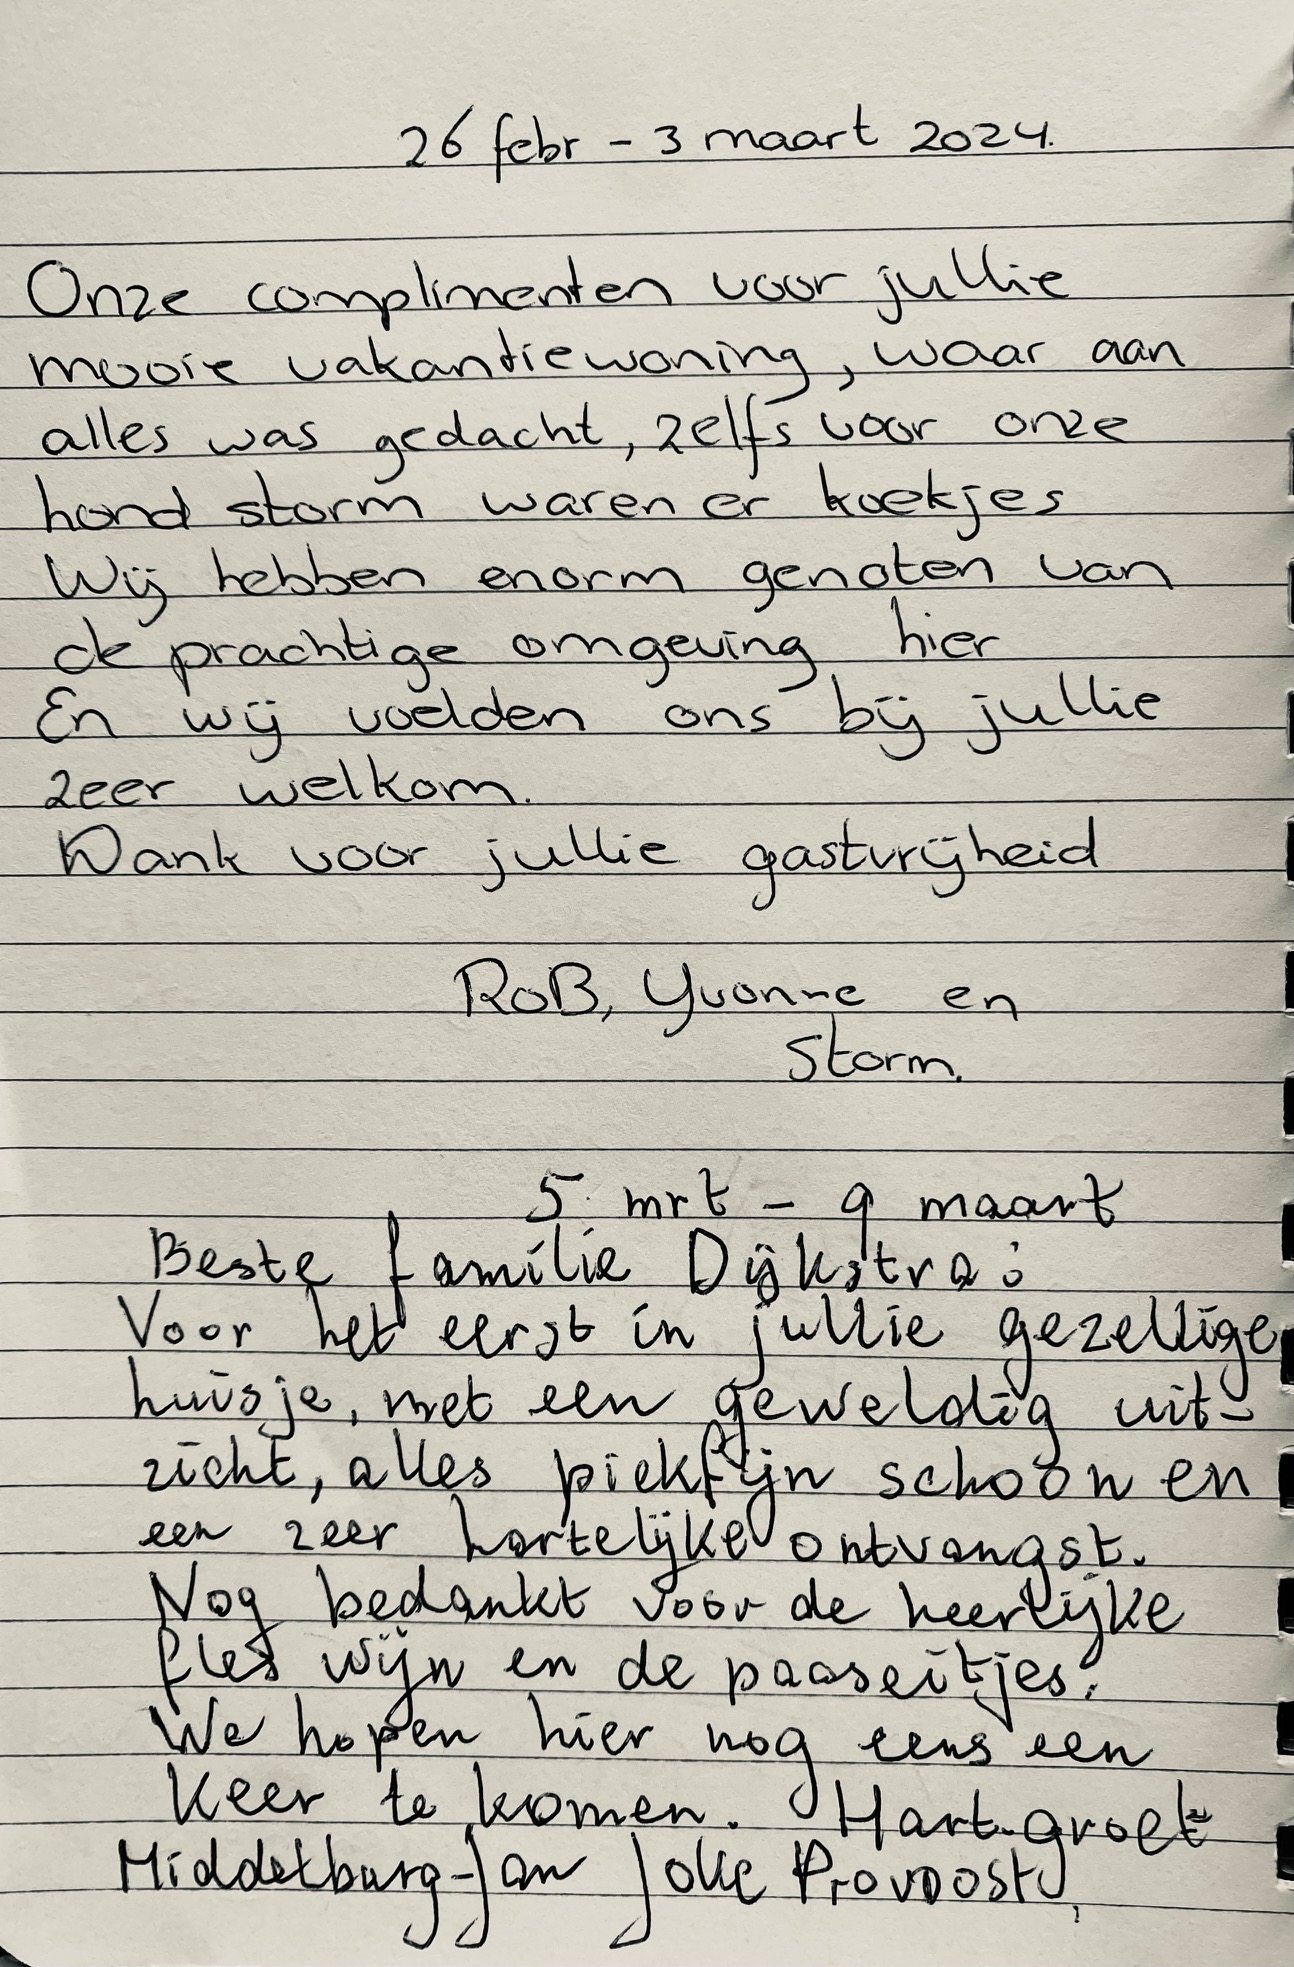 26 febr - 3 maart 2024.
Onze complimenten voor jullie
mooie vakantiewoning, waar aan
alles was gedacht, zelfs voor onze
hond storm waren er koekjes
Wij hebben enorm genoten van
de prachtige omgeving hier
En wij voelden ons bij jullie
zeer welkom.
Dank voor jullie gastvrijheid
RoB, Yvonne en
Storm.
5 mrt - 9 maart
Beste familie Dijkstra:
Voor het eerst in jullie gezellige
huisje, met een geweldig uit-
zicht, alles piekfijn schoon en
een zeer hartelijke ontvangst.
Nog bedankt voor de heerlijke
fles wijn en de paaseitjes.
We hopen hier nog eens een
keer te komen. Hart. groet
Middelburg - Jan Joke Provoost